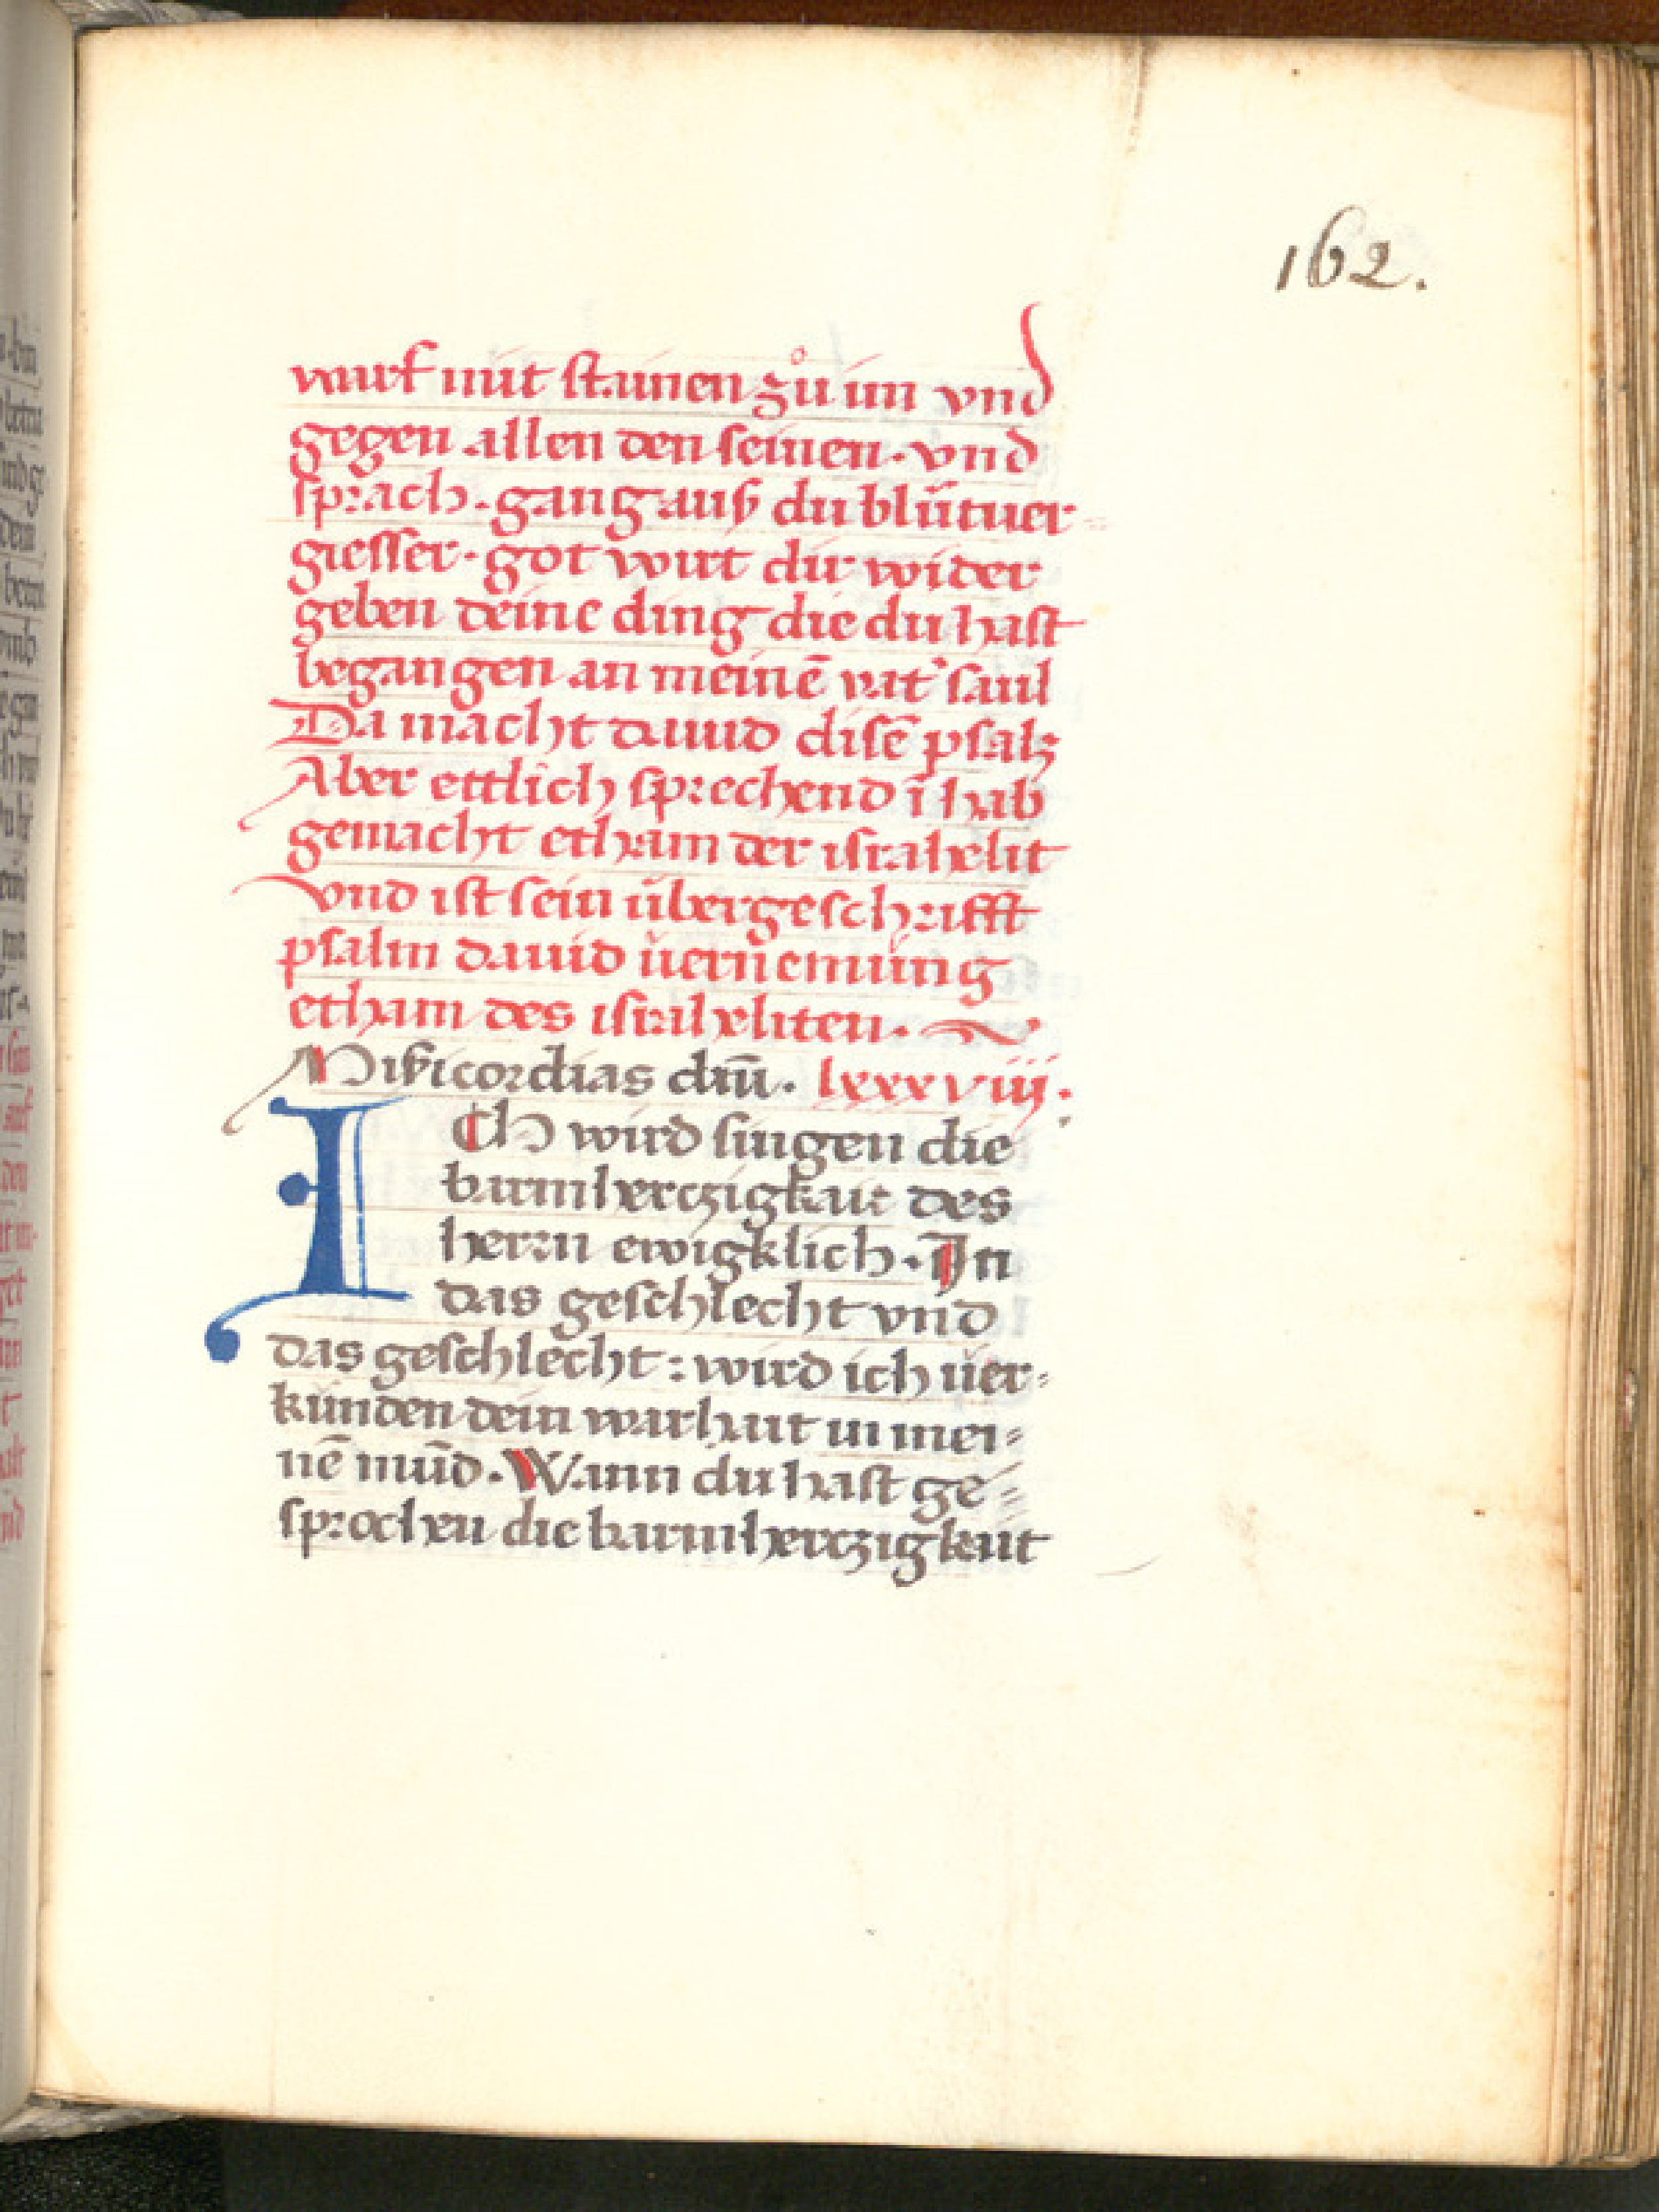 162.
wurf mit stainen zů im vnd
gegen allen den seinen. vnd
sprach. gang auß du blūtuer
giesser. got wirt dir wider
geben deine ding die du hast
begangen an meinē vat' saul
Da macht dauid disē psalʒ
Aber ettlich sprechend ī hab
gemacht etham der israhelit
vnd ist sein übergeschrifft
psalm dauid üernemūng
etham des israheliten.
Mißicordias dm̄. lxxxviij.
ICh wird singen die
barmherczigkait des
herrn ewigklich. In
das geschlecht vnd
das geschlecht: wird ich üer⸗
künden dein warhait in mei⸗
nē mūd. Wann du hast ge⸗
sprochen die barmherczigkait